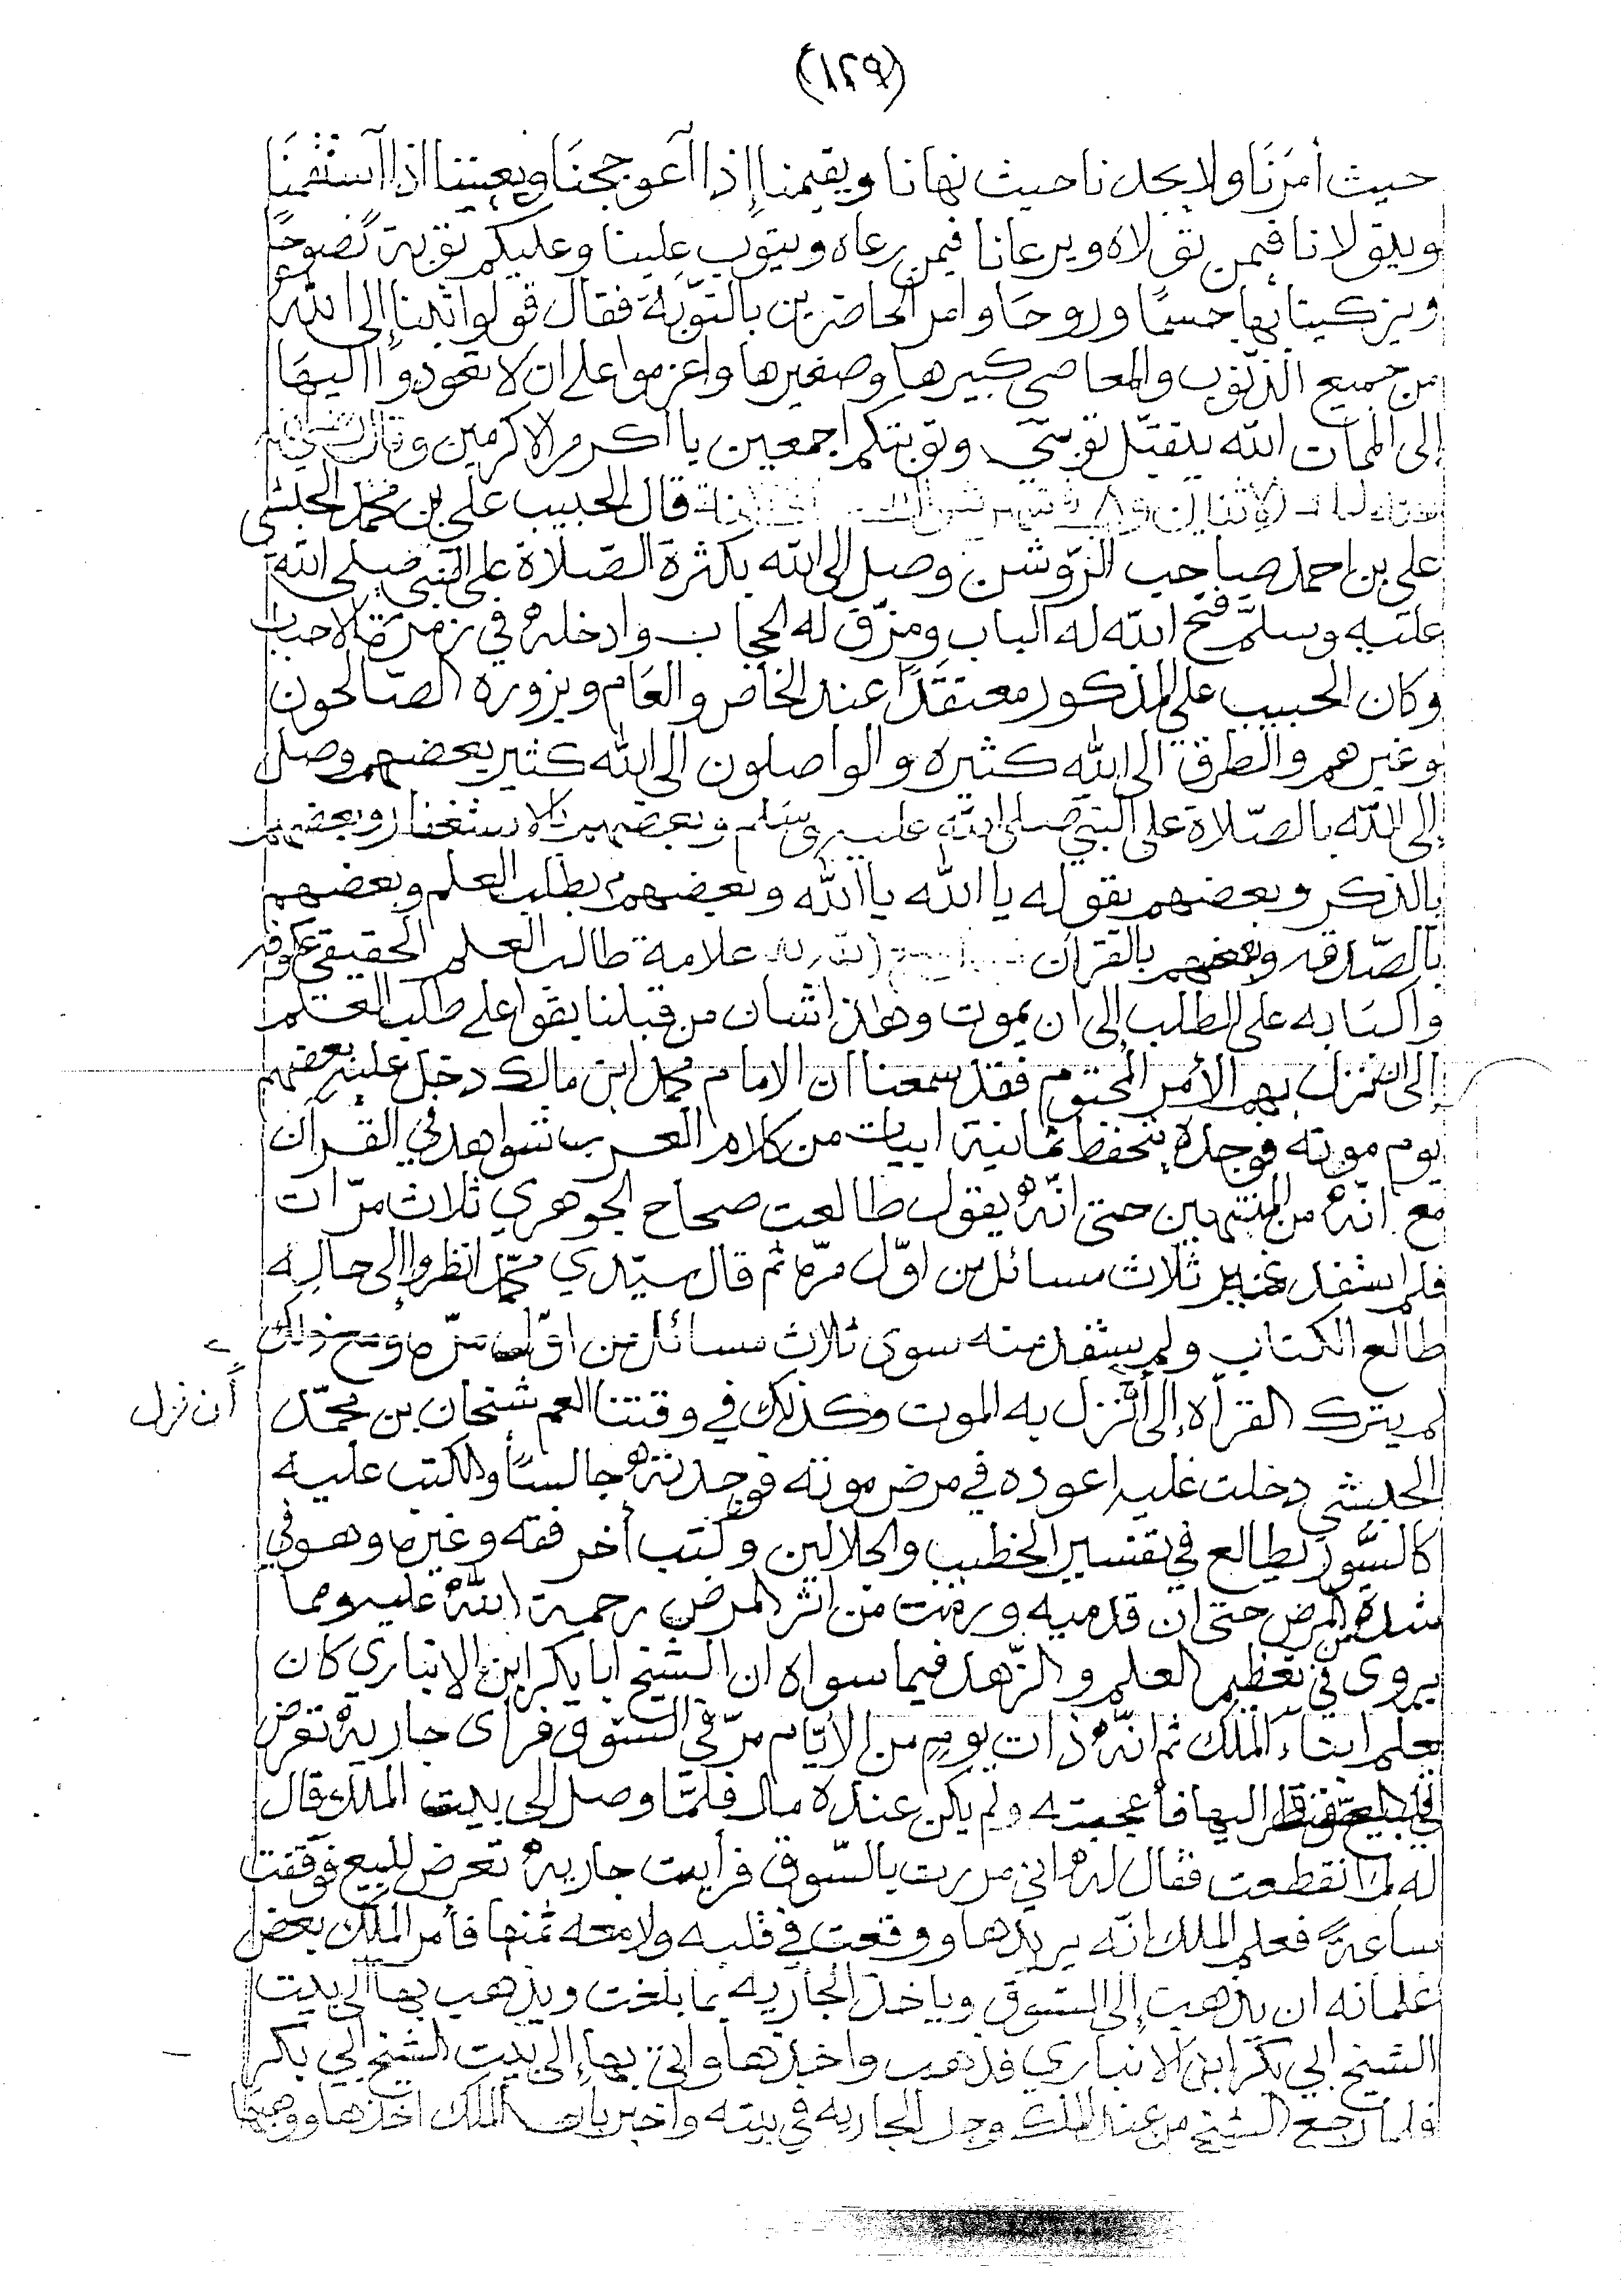 (١٢٩)
حيث أمرنا ولا يجدنا حيث نهانا ويقيمنا إذا آعوججنا ويعيننا اذا آستقمنا
ويتولانا فيمن تولاه ويرعانا فيمن رعاه ويتوب علينا وعليكم توبة نصوحًا
ويزكينا بها جسمًا وروحًا وامر الحاضرين بالتوبة فقال قولوا تبنا إلى الله
من جميع الذنوب والمعاصي كبيرها وصغيرها واعزموا على ان لا تعودوا اليها
إلى الممات الله يتقبّل توبتي وتوبتكم اجمعين يا أكرم الاكرمين وقال رضي الله
عنه ليلة الاثنين قال الحبيب علي بن محمد الحبشي
علي بن احمد صاحب الرّوشن وصل إلى الله بكثرة الصّلاة على النبي صلى الله
عليه وسلّم فتح الله له الباب ومزّق له الحجاب وادخلهُ في زمرة الاحباب
وكان الحبيب علي المذكور معتقدًا عند الخاص والعام ويزوره الصالحون
وغيرهم والطرق الى الله كثيره والواصلون الى الله كثير بعضهم وصل
إلى الله بالصّلاة على النبي صلى الله عليه وسلم وبعضهم بالاستغفار وبعضهم
بالذكر وبعضهم بقوله يا الله يا الله وبعضهم بطلب العلم وبعضهم
بالصّدقه وبعضهم بالقرآن علامة طالب العلم الحقيقي عكوفه
واكبابه على الطلب إلى ان يموت وهذا شان من قبلنا بقوا على طلب العلم
إلى ان نزل بهم الأمر المحتوم فقد سمعنا ان الامام محمد ابن مالك دخل عليه بعضهم
يوم موته فوجده يتحفظ ثمانية ابيات من كلام العرب شواهد في القرآن
مع انّهُ من المنتهيين حتى انّهُ يقول طالعت صحاح الجوهري ثلاث مرّات
فلم استفد غير ثلاث مسائل من اوّل مرّه ثم قال سيّدي محمّد انظروا إلى حاله
طالع الكتاب ولم يستفد منه سوى ثلاث مسائل من اوّل مرّه ومع ذلك
لم يترك القرأه إلى أن نزل به الموت وكذلك في وقتنا العم شيخان بن محمّد
أن نزل
الحبشي دخلت عليه اعوده في مرض موته فوجدتهُ جالسًا والكتب عليه
كالسّور يطالع في تفسير الخطيب والجلالين وكتب أخر فقه وغيره وهو في
شدة المرض حتى ان قدميه ورمت من اثر المرض رحمة اللهُ عليه ومما
يروى في تعظيم العلم والزّهد فيما سواه ان الشيخ ابا بكر ابن الانباري كان
يعلم ابناء الملك ثم انّهُ ذات يومٍ من الأيّام مرّ في السّوق فرأى جاريهْ تعرض
في البيع فنظر اليها فأعجبته ولم يكن عنده مال فلمّا وصل إلى بيت الملك قال
له لم انقطعت فقال لهُ اني مررت بالسّوق فرأيت جاريهْ تعرض للبيع فوقفت
ساعةً فعلم الملك انّه يريدها ووقعت في قلبه ولا معه ثمنها فأمر الملك بعض
غلمانه ان يذهب إلى السّوق وياخذ الجاريه بما بلغت ويذهب بها الى بيت
الشيخ ابي بكر ابن الانباري فذهب واخذها واتى بها إلى بيت الشيخ ابي بكر
فلما رجع الشيخ من عند الملك وجد الجاريه في بيته وأخبر بان الملك اخذها ووهبها